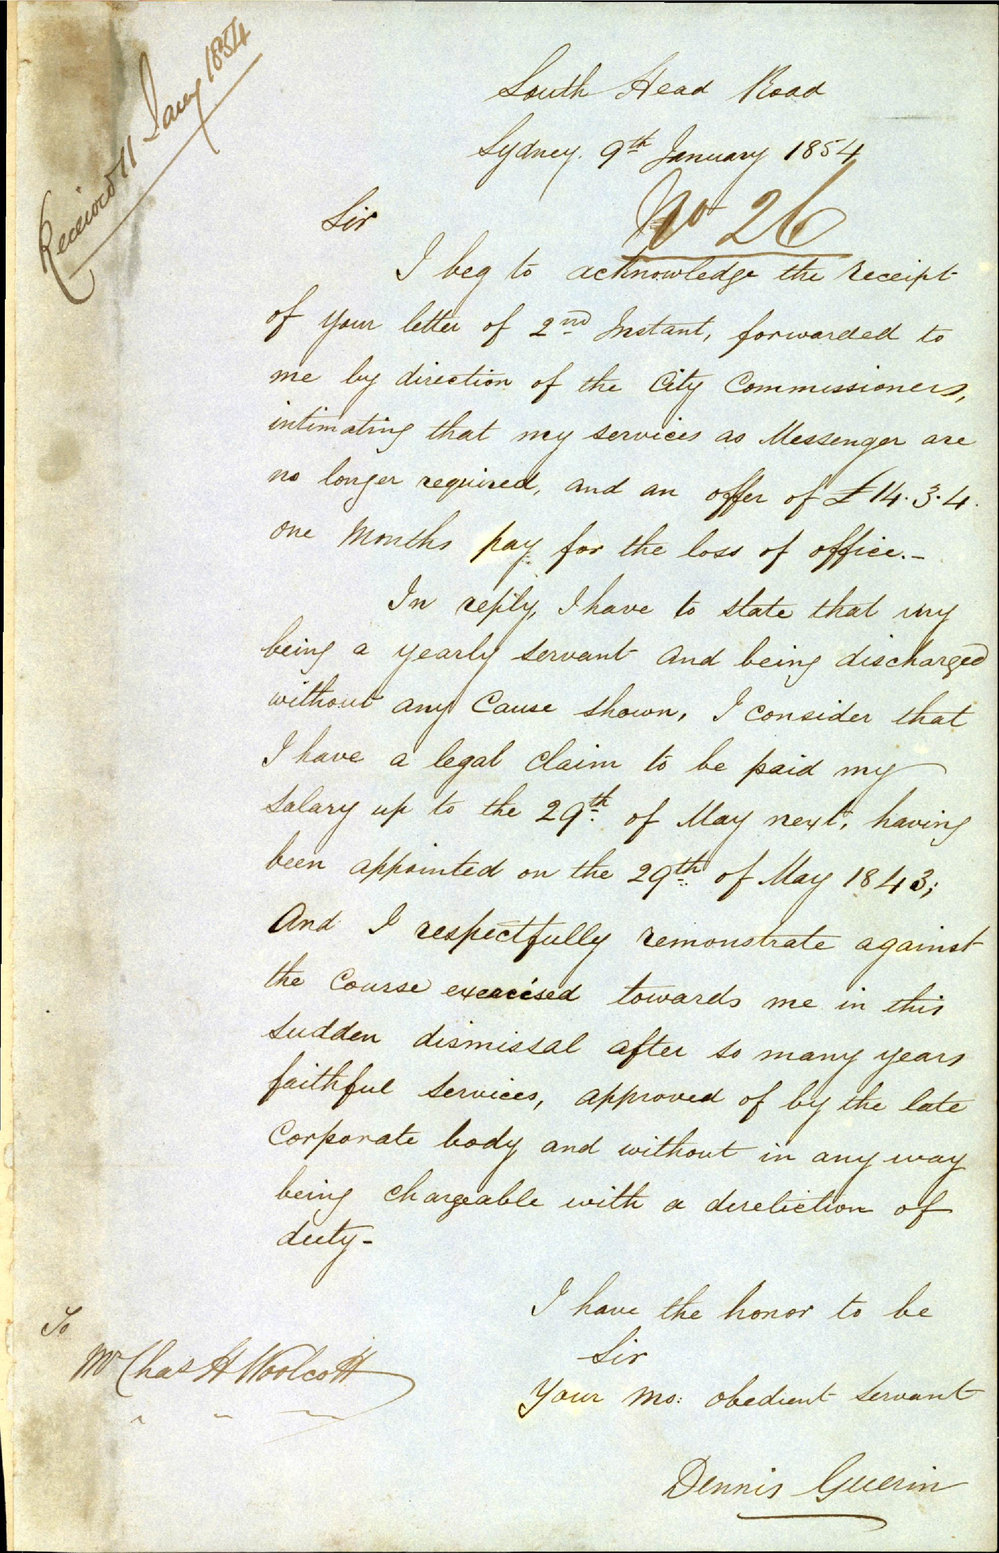 Received 11 Jany 1854
South Head Road
Sydney. 9th January 1854
No 26
Sir
I beg to acknowledge the receipt
of your letter of 2nd Instant, forwarded to
me by direction of the City Commissioners,
intimating that my services as Messenger are
no longer required, and an offer of £14.3.4.
one Months pay for the loss of office.-
In reply, I have to state that my
being a yearly servant and being discharged
without any Cause shown, I consider that
I have a legal claim to be paid my
salary up to the 29th of May next, having
been appointed on the 29th of May 1843;
And I respectfully remonstrate against
the Course exercised towards me in this
sudden dismissal after so many years
faithful services, approved of by the late
Corporate body and without in any way
being chargeable with a dereliction of
duty-
I have the honor to be
Sir
Your Mo: obedient servant
Dennis Guerin
To
Mr Chas H Woolcott